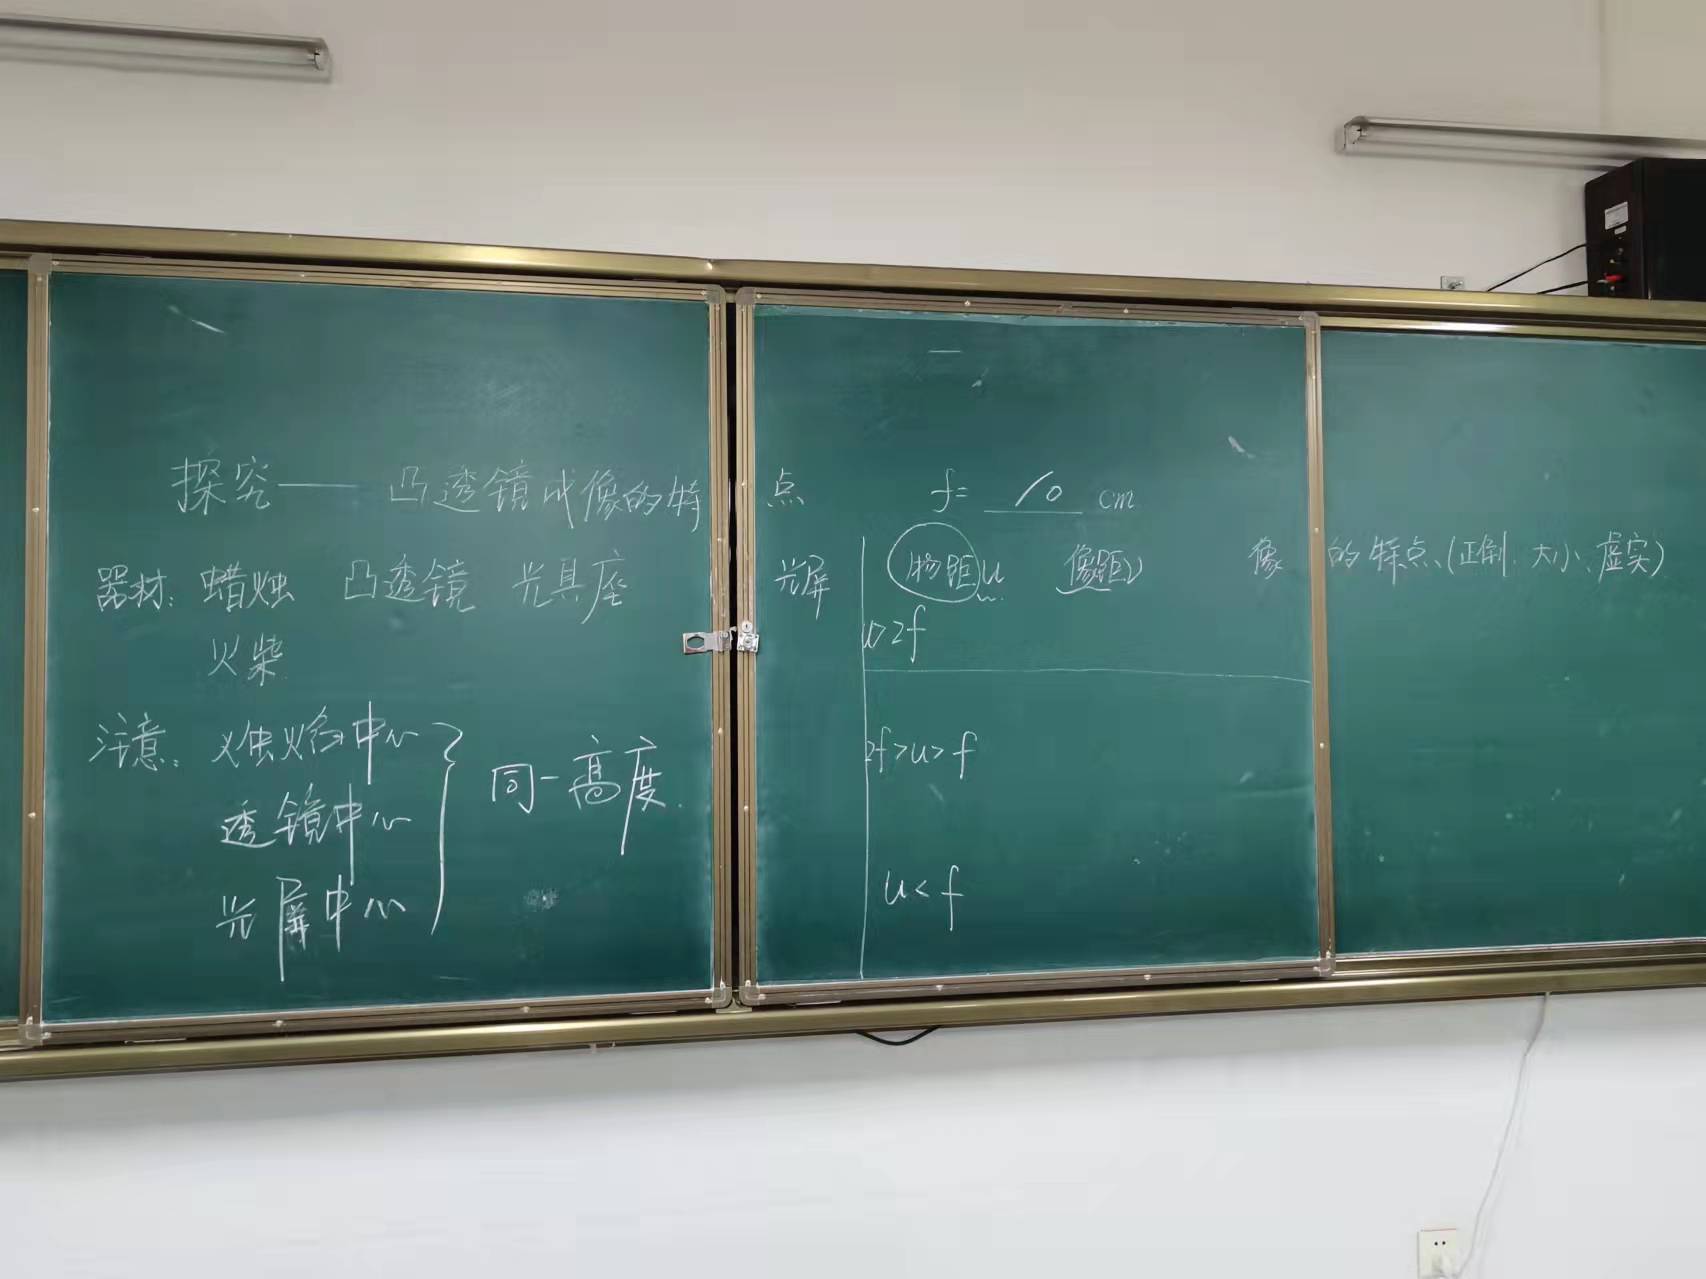 探究——凸透镜成像的特点 f= 10 cm
器材：蜡烛 凸透镜 光具座 光屏
火柴
注意：烛焰中心
透镜中心
光屏中心
同一高度.
物距u 像距v 像的特点、(正倒、大小、虚实)
u>2f
2f>u>f
u<f